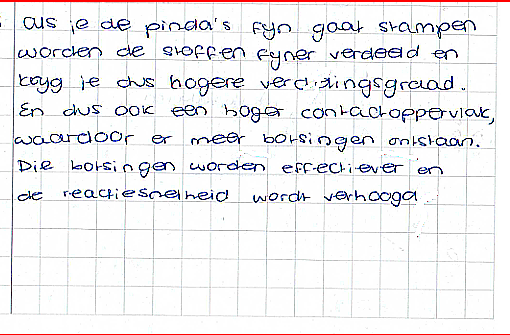 als je de pinda's fyn gaat stampen
worden de stoffen fyner verdeeld en
kryg je dus hogere verdelingsgraad.
En dus ook een hoger contactoppervlak,
waardoor er meer botsingen ontstaan.
Die botsingen worden effectiever en
de reactiesnelheid wordt verhoogd